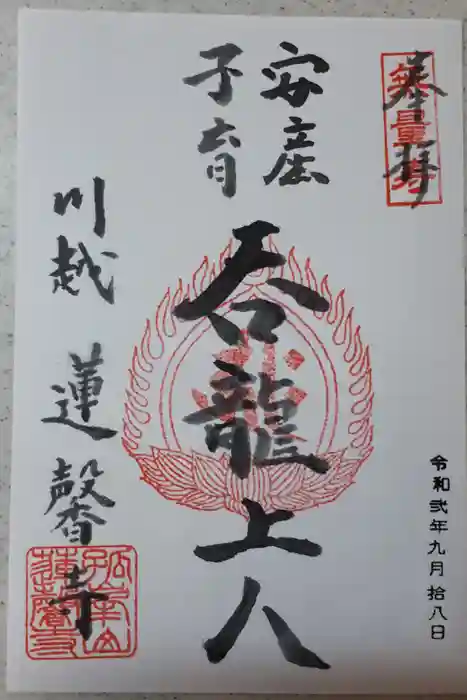 奉拝
無量寿
令和弐年九月拾八日
安産
子育
呑龍上人
川越 蓮馨寺